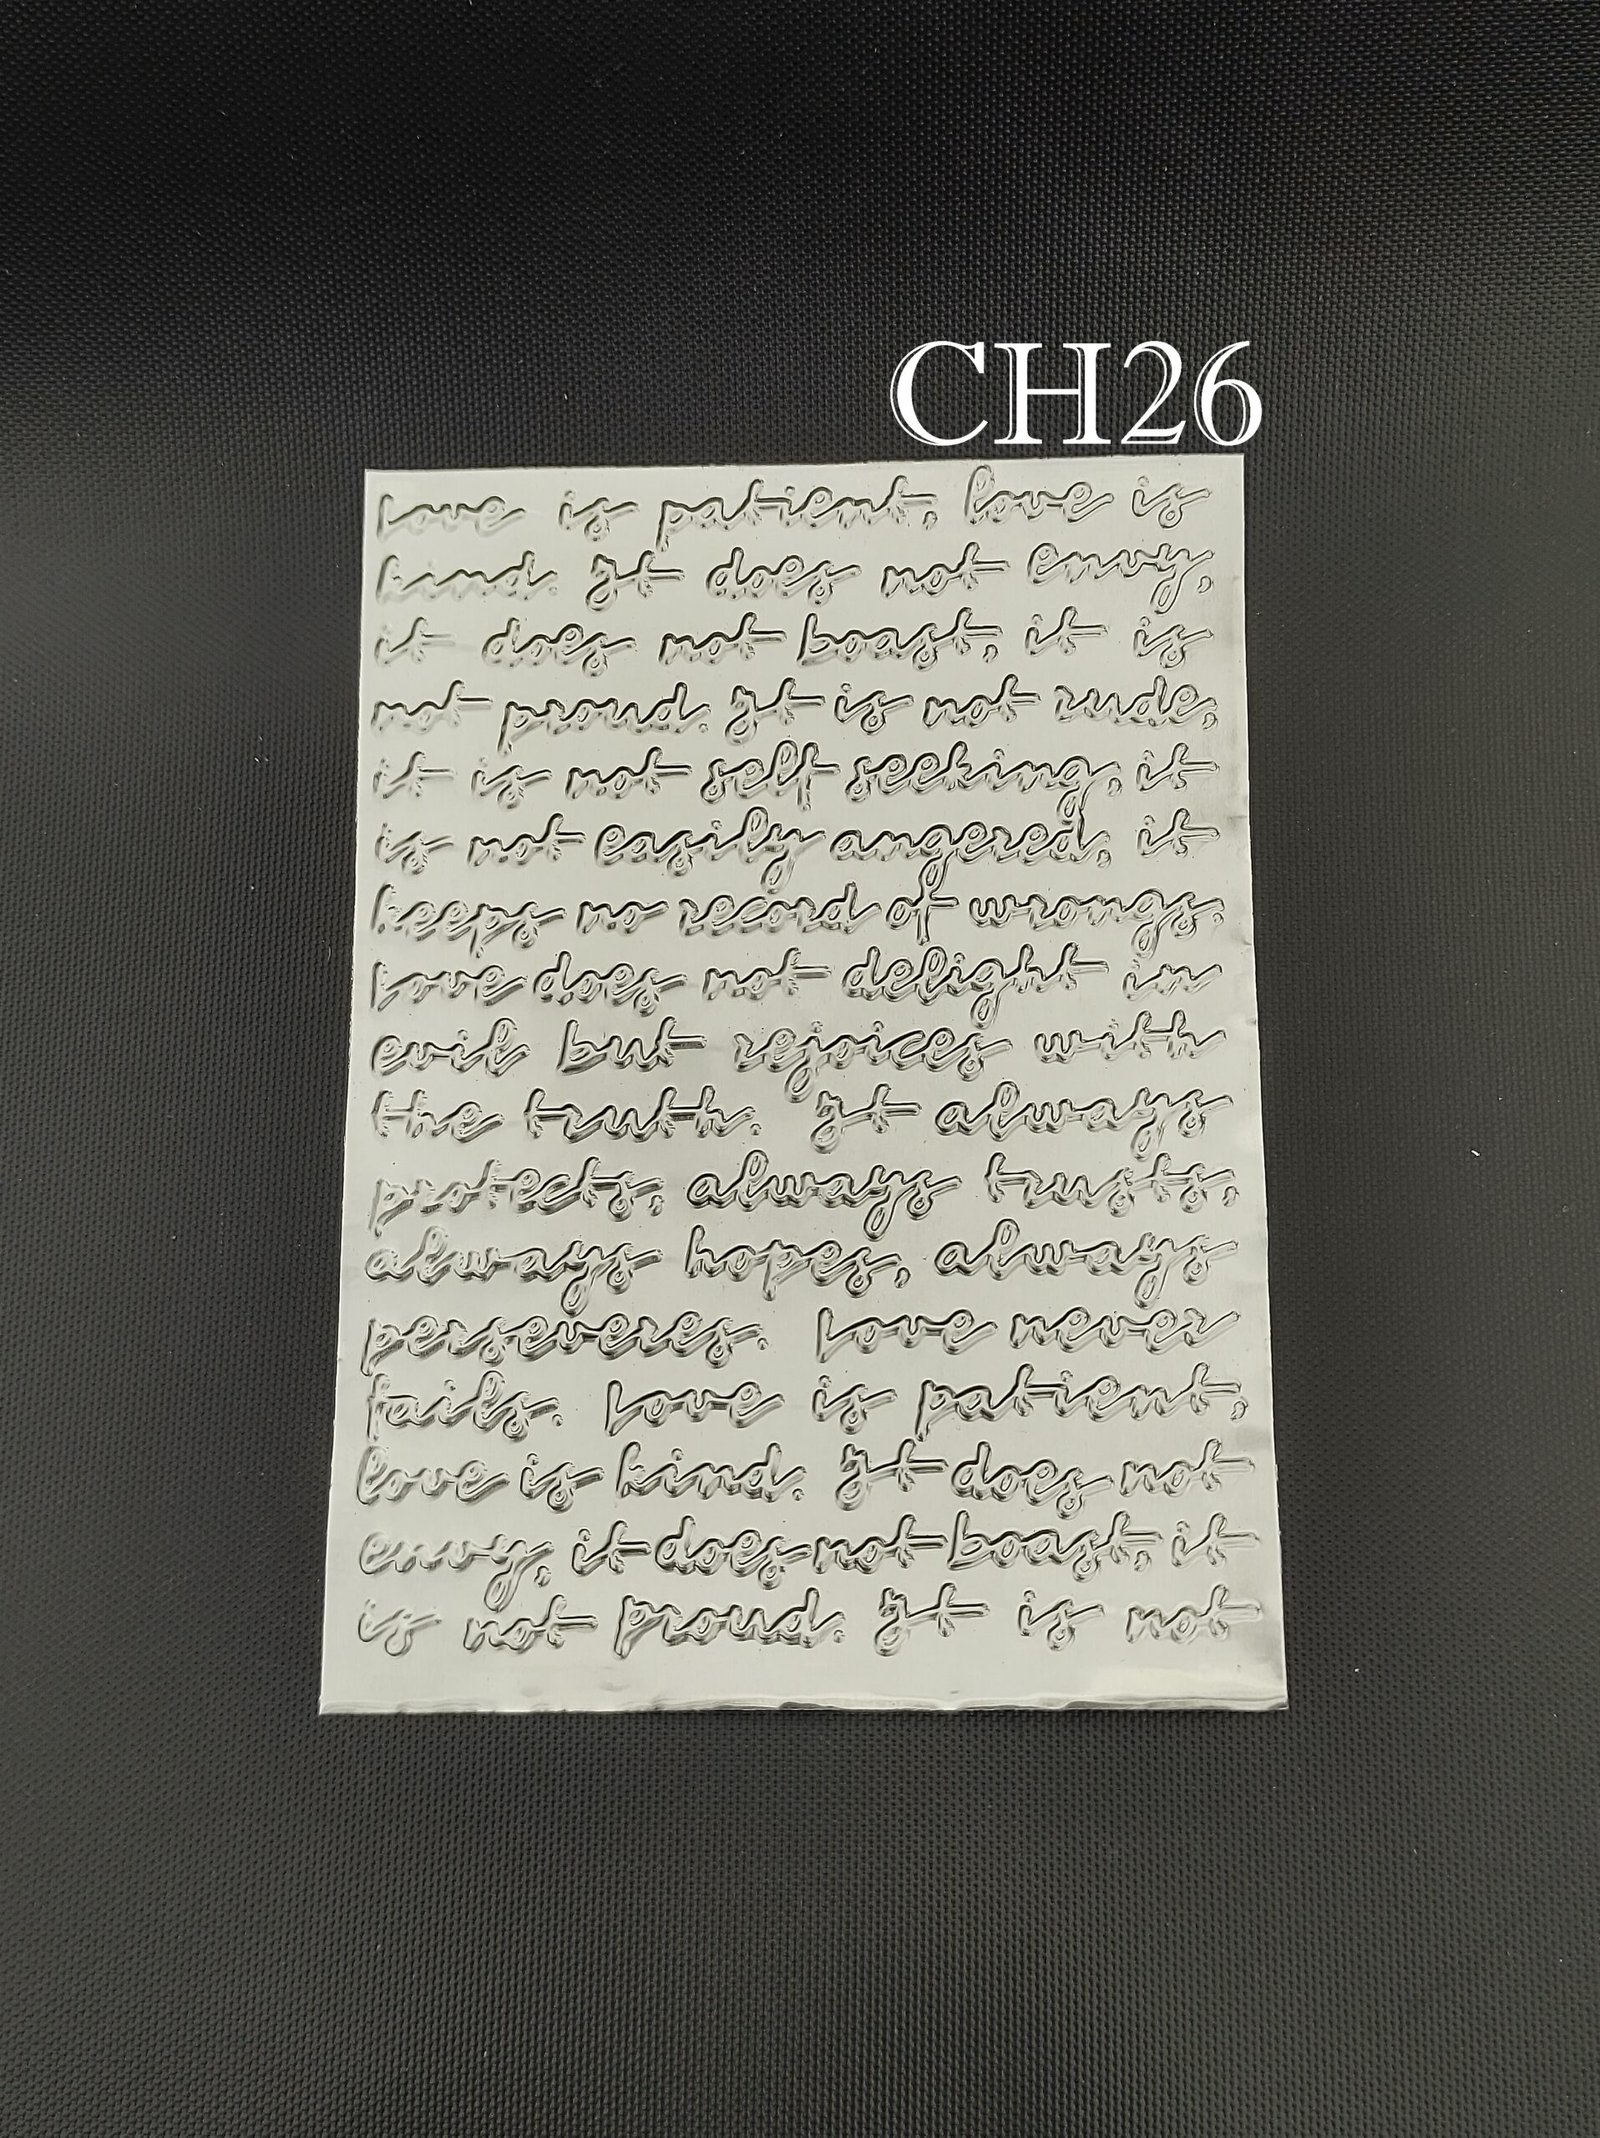 CH26
Love is patient, love is
kind. It does not envy,
it does not boast, it is
not proud. It is not rude,
it is not self seeking, it
is not easily angered, it
keeps no record of wrongs.
Love does not delight in
evil but rejoices with
the truth. It always
protects, always trusts,
always hopes, always
perseveres. Love never
fails. Love is patient,
love is kind. It does not
envy, it does not boast, it
is not proud. It is not